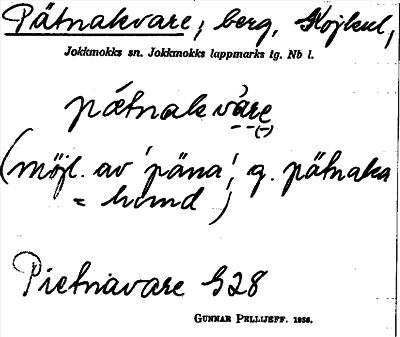 Pätnakvare, berg, Kojkul,
Jokkmokks sn. Jokkmokks lappmarks tg. Nb l.
pætnakvàre
(möjl. av 'päna', g. pätnaka
= hund)
Pietnavare G28
GUNNAR PELLIJEFF. 1936.